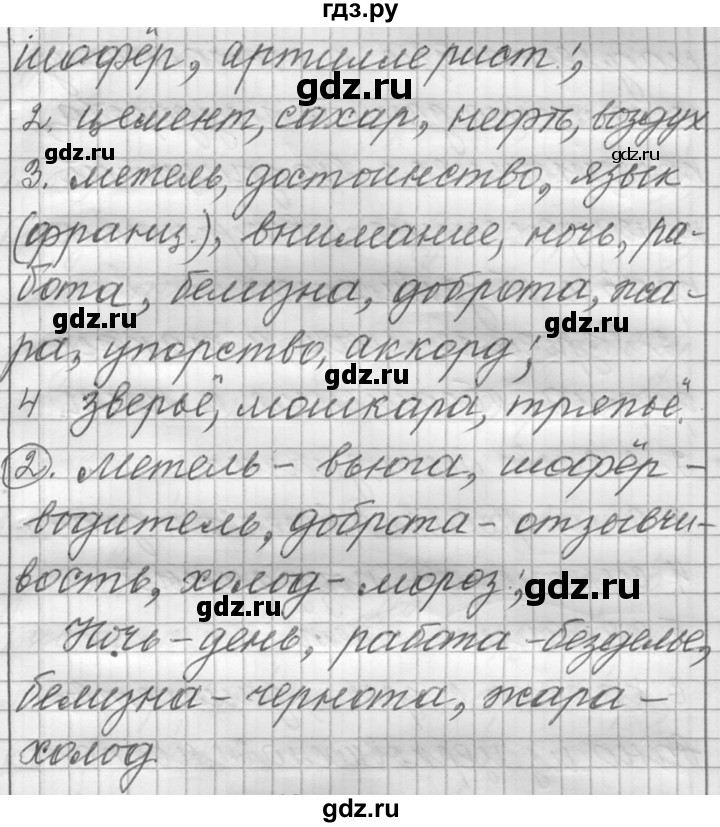 гдз.ру
шофёр, артиллерист;
gdz.ru
2. цемент, сахар, нефть, воздух
gdz.ru
gdz.ru
3. метель, достоинство, язык
(франц.), внимание, ночь, ра-
бота, белизна, доброта, жа-
gdz.ru
gdz.ru
ра, упорство, аккорд;
gdz.ru
4 зверьё, мошкара, тряпьё.
2. Метель - вьюга, шофёр -
водитель, доброта - отзывчи-
вость, холод - мороз;
gdz.ru
gdz.ru
Ночь - день, работа - безделье,
белизна - чернота, жара -
холод
gdz.ru